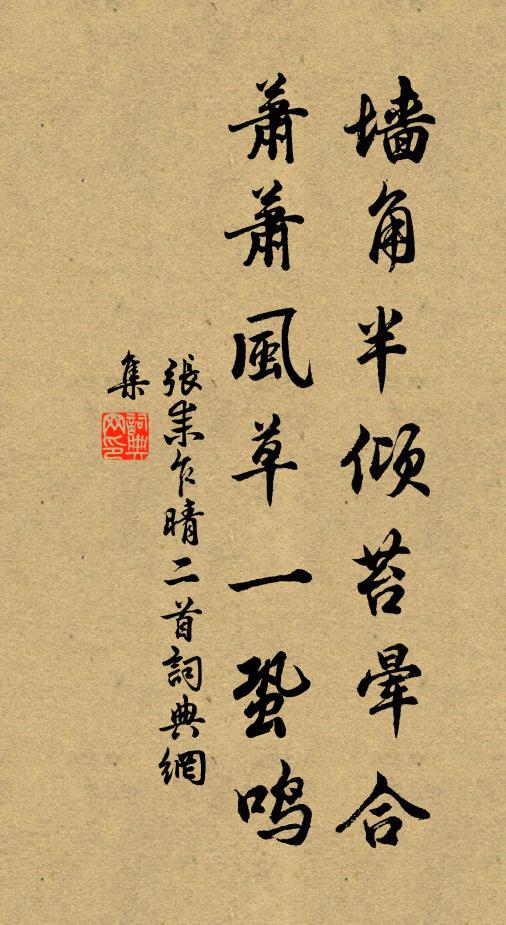 墙角半倾苔晕合
萧萧風草一蛩鸣
張耒乍晴二首詞典網
集
詞典网印